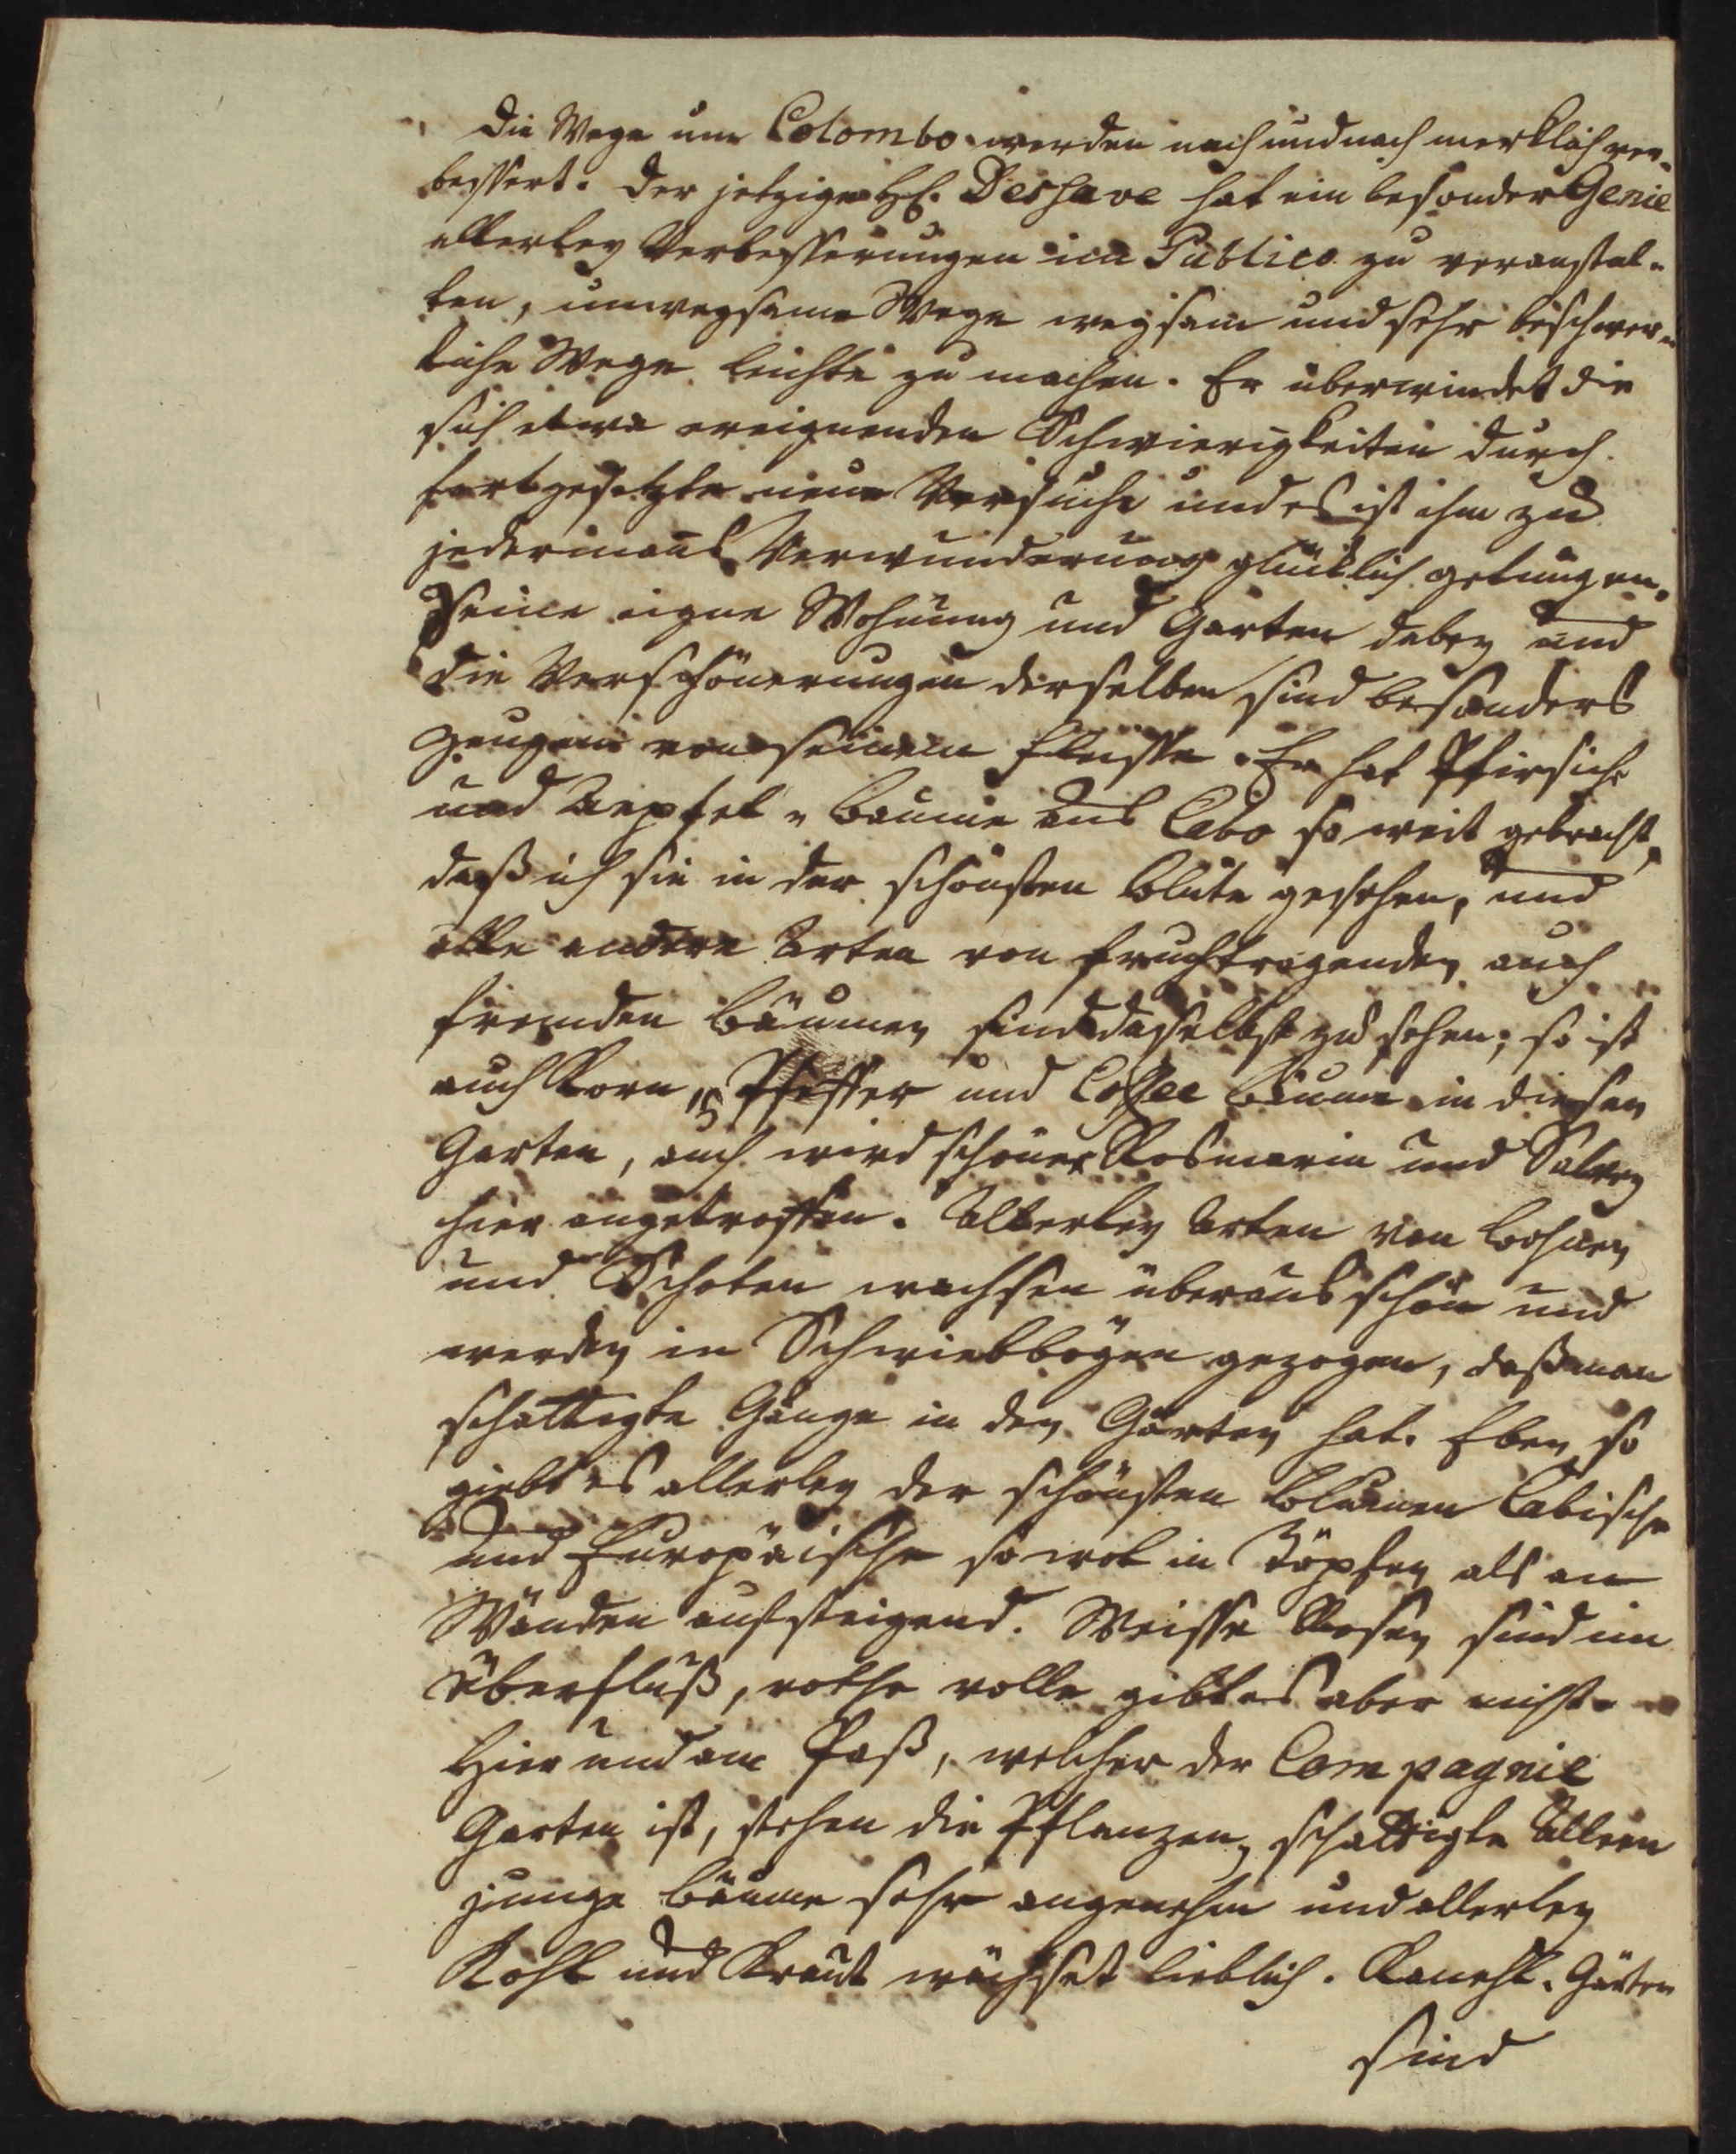 Die Wege um Colombo werden nach und nach merklich ver-
bessert. Der jetzige H. Dessave hat ein besonder Genie
allerley Verbesserungen im Publico zu veranstal-
ten, unwegsame Wege wegsam und sehr beschwer-
liche Wege leichte zu machen. Er überwindet die
sich etwa ereignenden Schwierigkeiten durch
fortgesetzte neue Versuche und es ist ihm zu
jedermans Verwunderung glücklich gelungen.
Seine eigne Wohnung und Garten dabey und
die Verschönerungen derselben sind besonders
Zeugen von seinem Fleisse. Er hat Pfirsich
und Aepfel-Bäume aus Cabo so weit gebracht,
daß ich sie in der schönsten Blüte gesehen, und
alle andere Arten von fruchtragenden auch
fremden Bäumen sind daselbst zu sehen; so ist
auch Korn, Pfeffer und Coffee Bäume in diesen
Garten, auch wird schöner Rosmarin und Salvey
hier angetroffen. Allerley Arten von Bohnen
und Schoten wachsen überaus schön und
werden in Schwiebbögen gezogen, daß man
schattigte Gänge in den Gärten hat. Eben so
giebt es allerley der schönsten Blumen Cabische
und Europäische so wol in Töpfen als an
Wänden aufsteigend. Weisse Rosen sind im
Überfluß, rothe volle gibt es aber nicht.
Hier und am Paß, welcher der Compagnie
Garten ist, stehen die Pflanzen, schattigte Alleen
junge Bäume sehr angenehm und allerley
Kohl und Kraut wächset lieblich. Kanehl-Gärten
sind